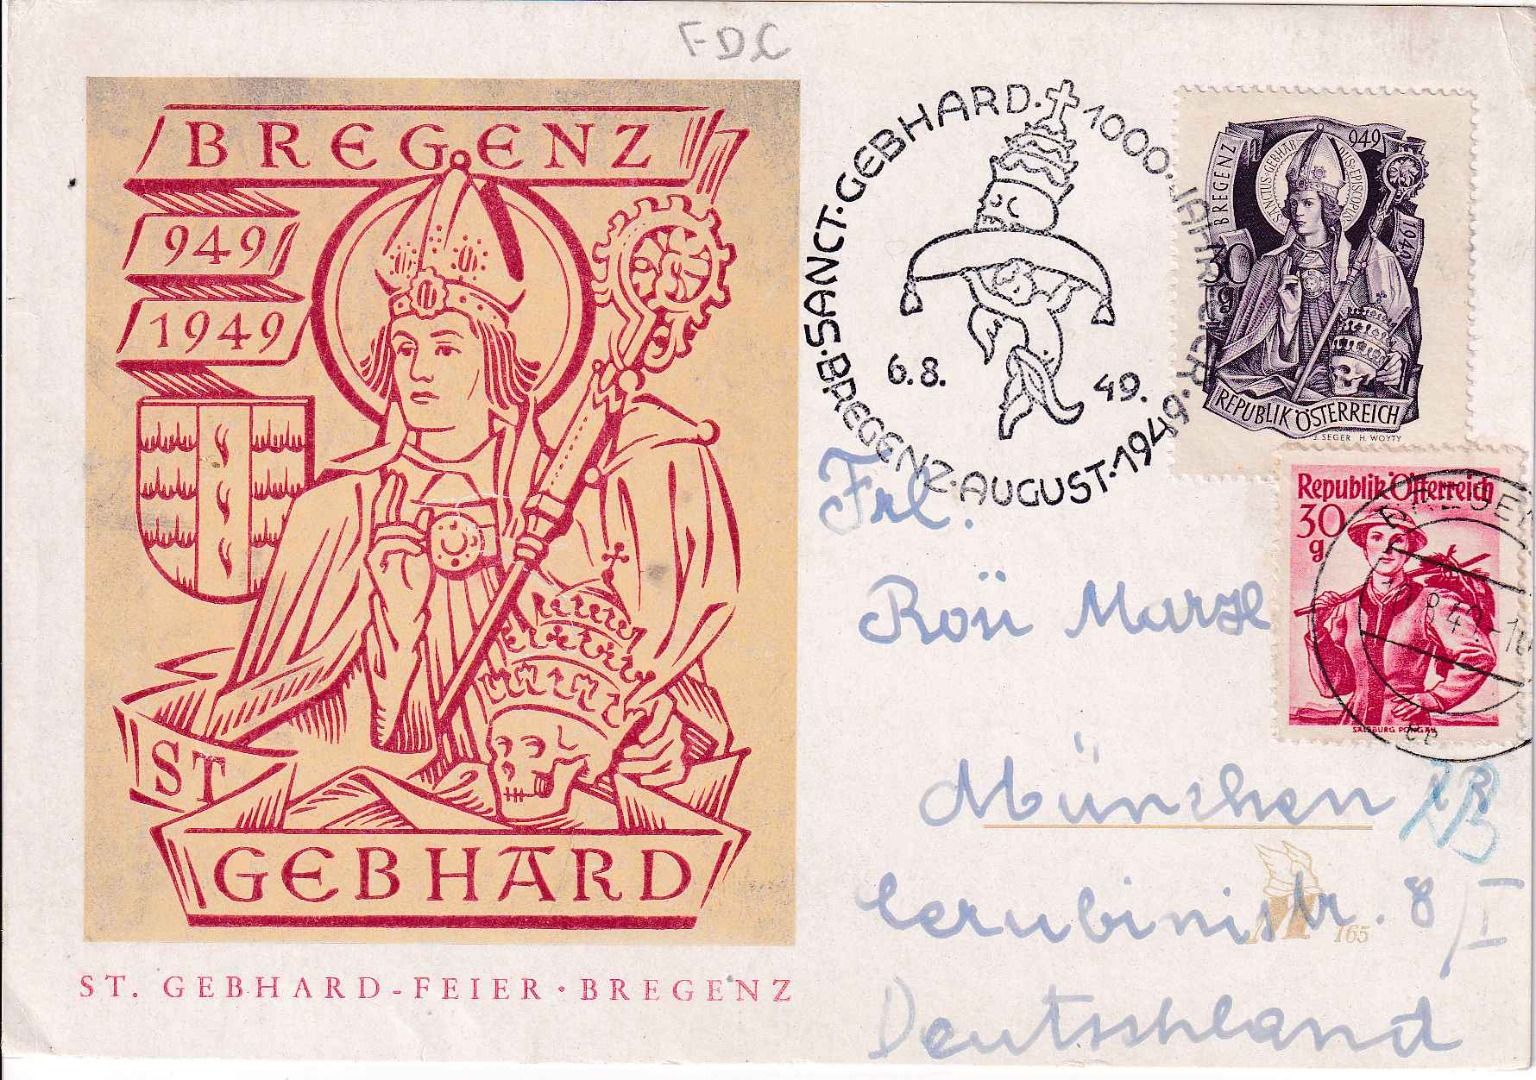 FDC
BREGENZ
949
1949
ST
GEBHARD
ST. GEBHARD-FEIER · BREGENZ
SANCT·GEBHARD·1000·JAHRFEIER·
BREGENZ·AUGUST·1949·
6.8. 49.
BREGENZ
SANCTUS·GEBHARDUS·EPISCOPUS
949
1949
30
g
REPUBLIK ÖSTERREICH
J. SEGER H. WOYTY
Republik Österreich
30
g
SALZBURG PONGAU
Frl.
München
Cerubinistr. 8/I
165
Deutschland